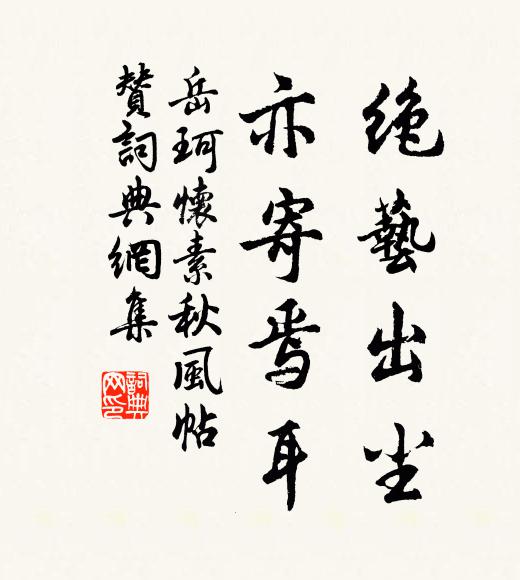 絶藝出尘
亦寄焉耳
岳珂懷素秋風帖
贊詞典網集
詞典
网印